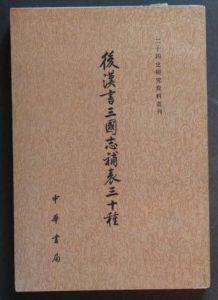 二十四史研究資料叢刊
後漢書三國志補表三十種
中華書局